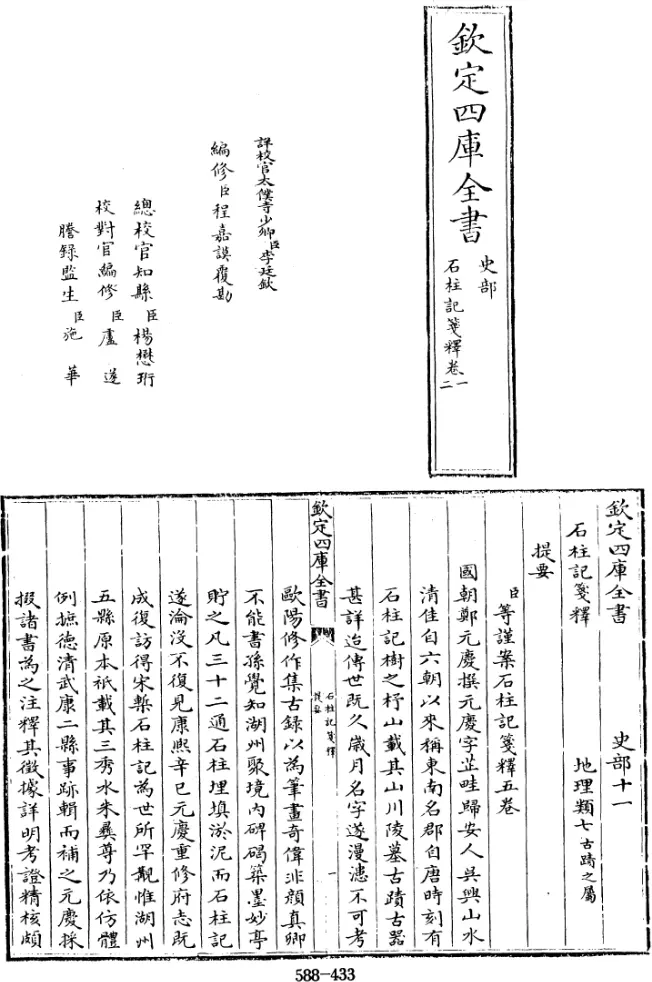 欽定四庫全書
史部
石柱記箋釋卷一
二
詳校官太僕寺少卿臣李廷欽
編修臣程嘉謨覆勘
總校官知縣臣楊懋珩
校對官編修臣盧遂
謄錄監生臣施華
欽定四庫全書 史部十一
石柱記箋釋 地理類七古蹟之屬
提要
臣等謹案石柱記箋釋五卷
國朝鄭元慶撰元慶字芷畦歸安人吳興山水
清佳自六朝以來稱東南名郡自唐時刻有
石柱記樹之杼山載其山川陵墓古蹟古器
甚詳迨傳世既久歲月名字遂漫漶不可考
欽定四庫全書
石柱記箋釋
提要
一
歐陽修作集古錄以為筆畫奇偉非顔真卿
不能書孫覺知湖州聚境內碑碣築墨妙亭
貯之凡三十二通石柱埋填淤泥而石柱記
遂淪沒不復見康熙辛巳元慶重修府志既
成復訪得宋槧石柱記為世所罕覯惟湖州
五縣原本祇載其三秀水朱彝尊乃依仿體
例摭德清武康二縣事跡輯而補之元慶採
掇諸書為之注釋其徵據詳明考證精核頗
588-433